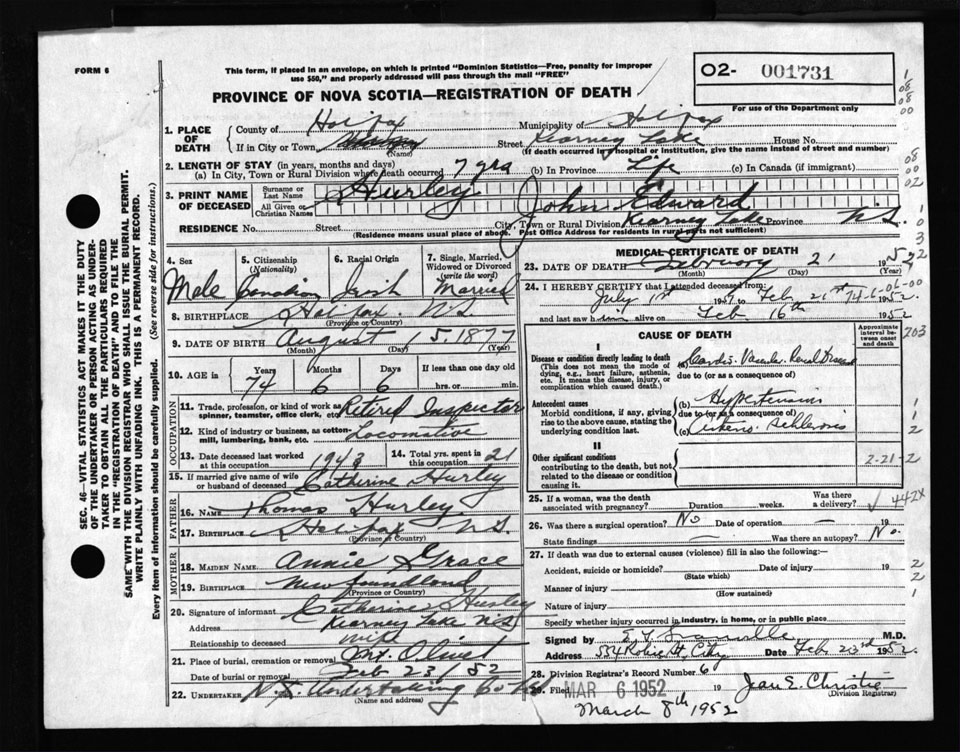 FORM 6
This form, if placed in an envelope, on which is printed "Dominion Statistics—Free, penalty for improper
use $50," and properly addressed will pass through the mail "FREE"
02- 001731
For use of the Department only
PROVINCE OF NOVA SCOTIA—REGISTRATION OF DEATH
1. PLACE OF DEATH
County of Halifax Municipality of Halifax
If in City or Town (Name) Street Kearney Lake House No.
(If death occurred in hospital or institution, give the name instead of street and number)
2. LENGTH OF STAY (in years, months and days)
(a) In City, Town or Rural Division where death occurred 7 yrs (b) In Province Life (c) In Canada (if immigrant)
3. PRINT NAME OF DECEASED
Surname or Last Name Hurley
All Given or Christian Names John Edward
RESIDENCE No. Street City, Town or Rural Division Kearney Lake Province N.S.
(Residence means usual place of abode. Post Office Address for residents in rural parts not sufficient)
4. Sex Male
5. Citizenship (Nationality) Canadian
6. Racial Origin Irish
7. Single, Married, Widowed or Divorced (write the word) Married
8. BIRTHPLACE Halifax N.S.
(Province or Country)
9. DATE OF BIRTH August 15. 1877
(Month) (Day) (Year)
10. AGE in Years 74 Months 6 Days 6 If less than one day old
hrs. or min.
OCCUPATION
11. Trade, profession, or kind of work as spinner, teamster, office clerk, etc. Retired Inspector
12. Kind of industry or business, as cotton-mill, lumbering, bank, etc. Locomotive
13. Date deceased last worked at this occupation 1943
14. Total yrs. spent in this occupation 21
15. If married give name of wife or husband of deceased Catherine Hurley
FATHER
16. NAME Thomas Hurley
17. BIRTHPLACE Halifax N.S.
(Province or Country)
MOTHER
18. MAIDEN NAME Annie Grace
19. BIRTHPLACE Newfoundland
(Province or Country)
20. Signature of informant Catherine Hurley
Address Kearney Lake N.S.
Relationship to deceased wife
21. Place of burial, cremation or removal Mt. Olivet
Date of burial or removal Feb 23 1952
22. UNDERTAKER N.S. Undertaking Co Ltd
(Name and address)
MEDICAL CERTIFICATE OF DEATH
23. DATE OF DEATH February 21 1952
(Month) (Day) (Year)
24. I HEREBY CERTIFY that I attended deceased from:
July 1st Feb 21st 1952
and last saw him alive on Feb 16th 1952
CAUSE OF DEATH
Approximate interval between onset and death
I
Disease or condition directly leading to death
(This does not mean the mode of dying, e.g., heart failure, asthenia, etc. It means the disease, injury, or complication which caused death.)
(a) Cardio-Vascular-Renal Disease
due to (or as a consequence of)
Antecedent causes
Morbid conditions, if any, giving rise to the above cause, stating the underlying condition last.
(b) Hypertension
due to (or as a consequence of)
(c) Arterio-Sclerosis
II
Other significant conditions contributing to the death, but not related to the disease or condition causing it.
25. If a woman, was the death associated with pregnancy? Duration weeks. Was there a delivery?
442X
26. Was there a surgical operation? No Date of operation 19
State findings Was there an autopsy? No.
27. If death was due to external causes (violence) fill in also the following:—
Accident, suicide or homicide? Date of injury 19
(State which)
Manner of injury
(How sustained)
Nature of injury
Specify whether injury occurred in industry, in home, or in public place
Signed by M.D.
Address Robie St. City Date Feb 23rd 1952
28. Division Registrar's Record Number 6
29. Filed MAR 6 1952 19 Jean E. Christie
(Division Registrar)
March 8th 1952
SEC. 46—VITAL STATISTICS ACT MAKES IT THE DUTY
OF THE UNDERTAKER OR PERSON ACTING AS UNDER-
TAKER TO OBTAIN ALL THE PARTICULARS REQUIRED
IN THE "REGISTRATION OF DEATH" AND TO FILE THE
SAME WITH THE DIVISION REGISTRAR WHO SHALL ISSUE THE BURIAL PERMIT.
WRITE PLAINLY WITH UNFADING INK. THIS IS A PERMANENT RECORD.
Every item of information should be carefully supplied. (See reverse side for instructions.)